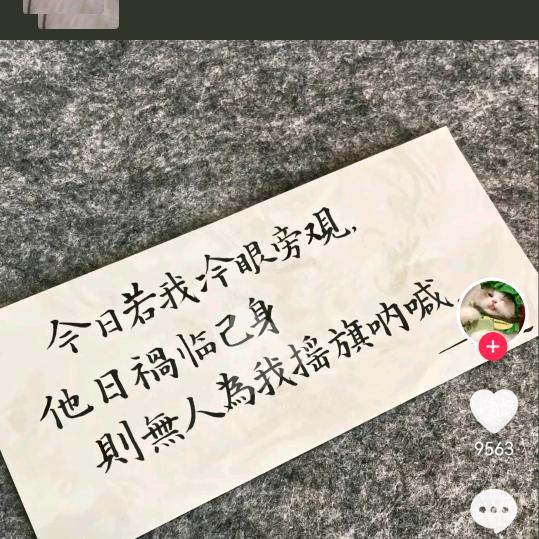 今日若我冷眼旁观,
他日禍临己身
則無人為我摇旗呐喊。
9563